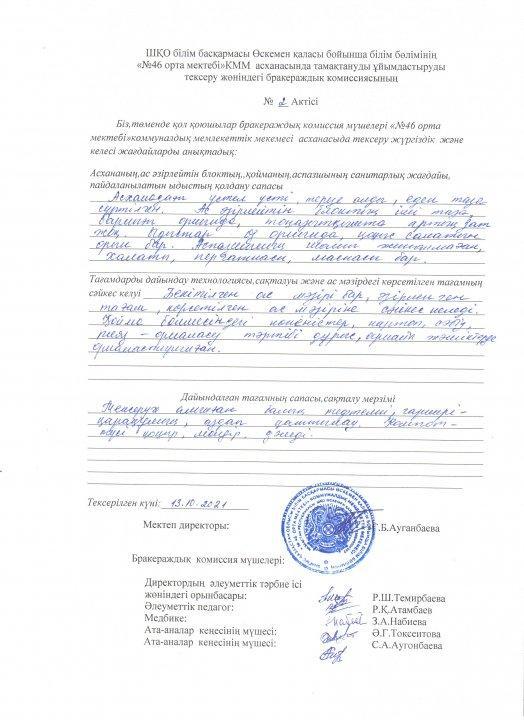 ШҚО білім басқармасы Өскемен қаласы бойынша білім бөлімінің
«№46 орта мектебі»КММ асханасында тамақтануды ұйымдастыруды
тексеру жөніндегі бракераждық комиссиясының
№ 2 Актісі
Біз,төменде қол қоюшылар бракераждық комиссия мүшелері «№46 орта
мектебі»коммуналдық мемлекеттік мекемесі асханасыда тексеру жүргіздік және
келесі жағдайларды анықтадық:
Асхананың,ас әзірлейтін блоктың,,қойманың,аспазшының санитарлық жағдайы,
пайдаланылатын ыдыстың қолдану сапасы
Асханасат үстел үсті, терезе алды, еден таза
сүртілген. Ас әзірлейтін блоктың іші таза,
орнында, артық зат
жоқ. өз орнында,
орын бар. Аспазшының шашы жиналмаған,
халаты, перчаткасы, маскасы бар.
Тағамдарды дайындау технологиясы,сақталуы және ас мәзірдегі көрсетілген тағамның
сәйкес келуі Бекітілген ас мәзірі бар, әзірленген
тағам, көрсетілген ас мәзіріне сәйкес келеді.
Қойма бөлмесіндегі көкөністер, картоп, сәбіз,
пияз - орналасу тәртібі дұрыс, арнайы жәшіктерде
орналастырылған.
Дайындалған тағамның сапасы,сақтау мерзімі
Тексеруге алынған балық тефтелиі, гарнирі-
қарақұмық, аздап Компот-
дәмді.
Тексерілген күні: 13.10.2021
Мектеп директоры:
.Б.Ауганбаева
Бракераждық комиссия мүшелері:
Директордың әлеуметтік тәрбие ісі
жөніндегі орынбасары: Р.Ш.Темирбаева
Әлеуметтік педагог: Р.Қ.Атамбаев
Медбике: З.А.Набиева
Ата-аналар кеңесінің мүшесі: Ә.Г.Токсеитова
Ата-аналар кеңесінің мүшесі: С.А.Аугонбаева